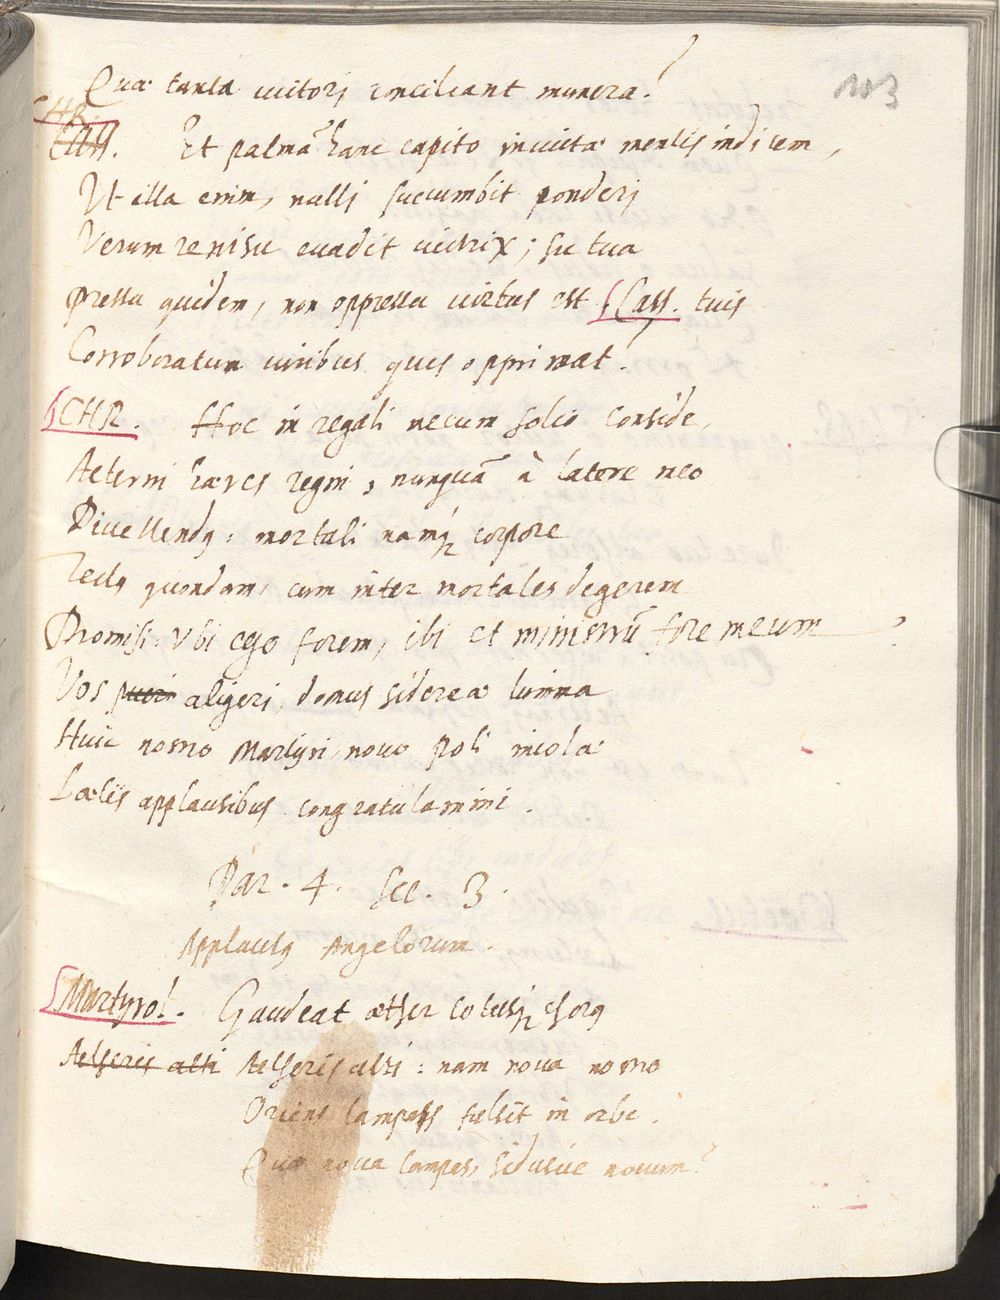 103
Quæ tanta victori conciliant munera?
CHR.
Cass. Et palmā hanc capito invictæ mentis indicem,
Ut illa enim, nulli succumbit ponderi
Verum renisu evadit victrix; sic tua
Pressa quidem, non oppressa virtus est [Cass. tuis
Corroboratum viribus quis opprimat?
[CHR. Hoc in regali mecum solio conside,
Aeterni hæres regni, nunquā à latere meo
Divellendus: mortali namq; corpore
Tectus quondam, cum inter mortales degerem
Promisi: Ubi ego forem, ibi et ministrū fore meum,
Vos pueri aligeri, domus sidereæ lumina
Huic nostro Martyri, novo poli incolæ
Lætis applausibus congratulamini.
Par. 4. Sce. 3.
Applausus Angelorum.
[Martyrol. Gaudeat æther cœtusq; chorus
Aetheris alti Aetheris alti: nam nova nostro
Oriens lampas fulsit in orbe.
Quæ nova lampas, sidusve novum?